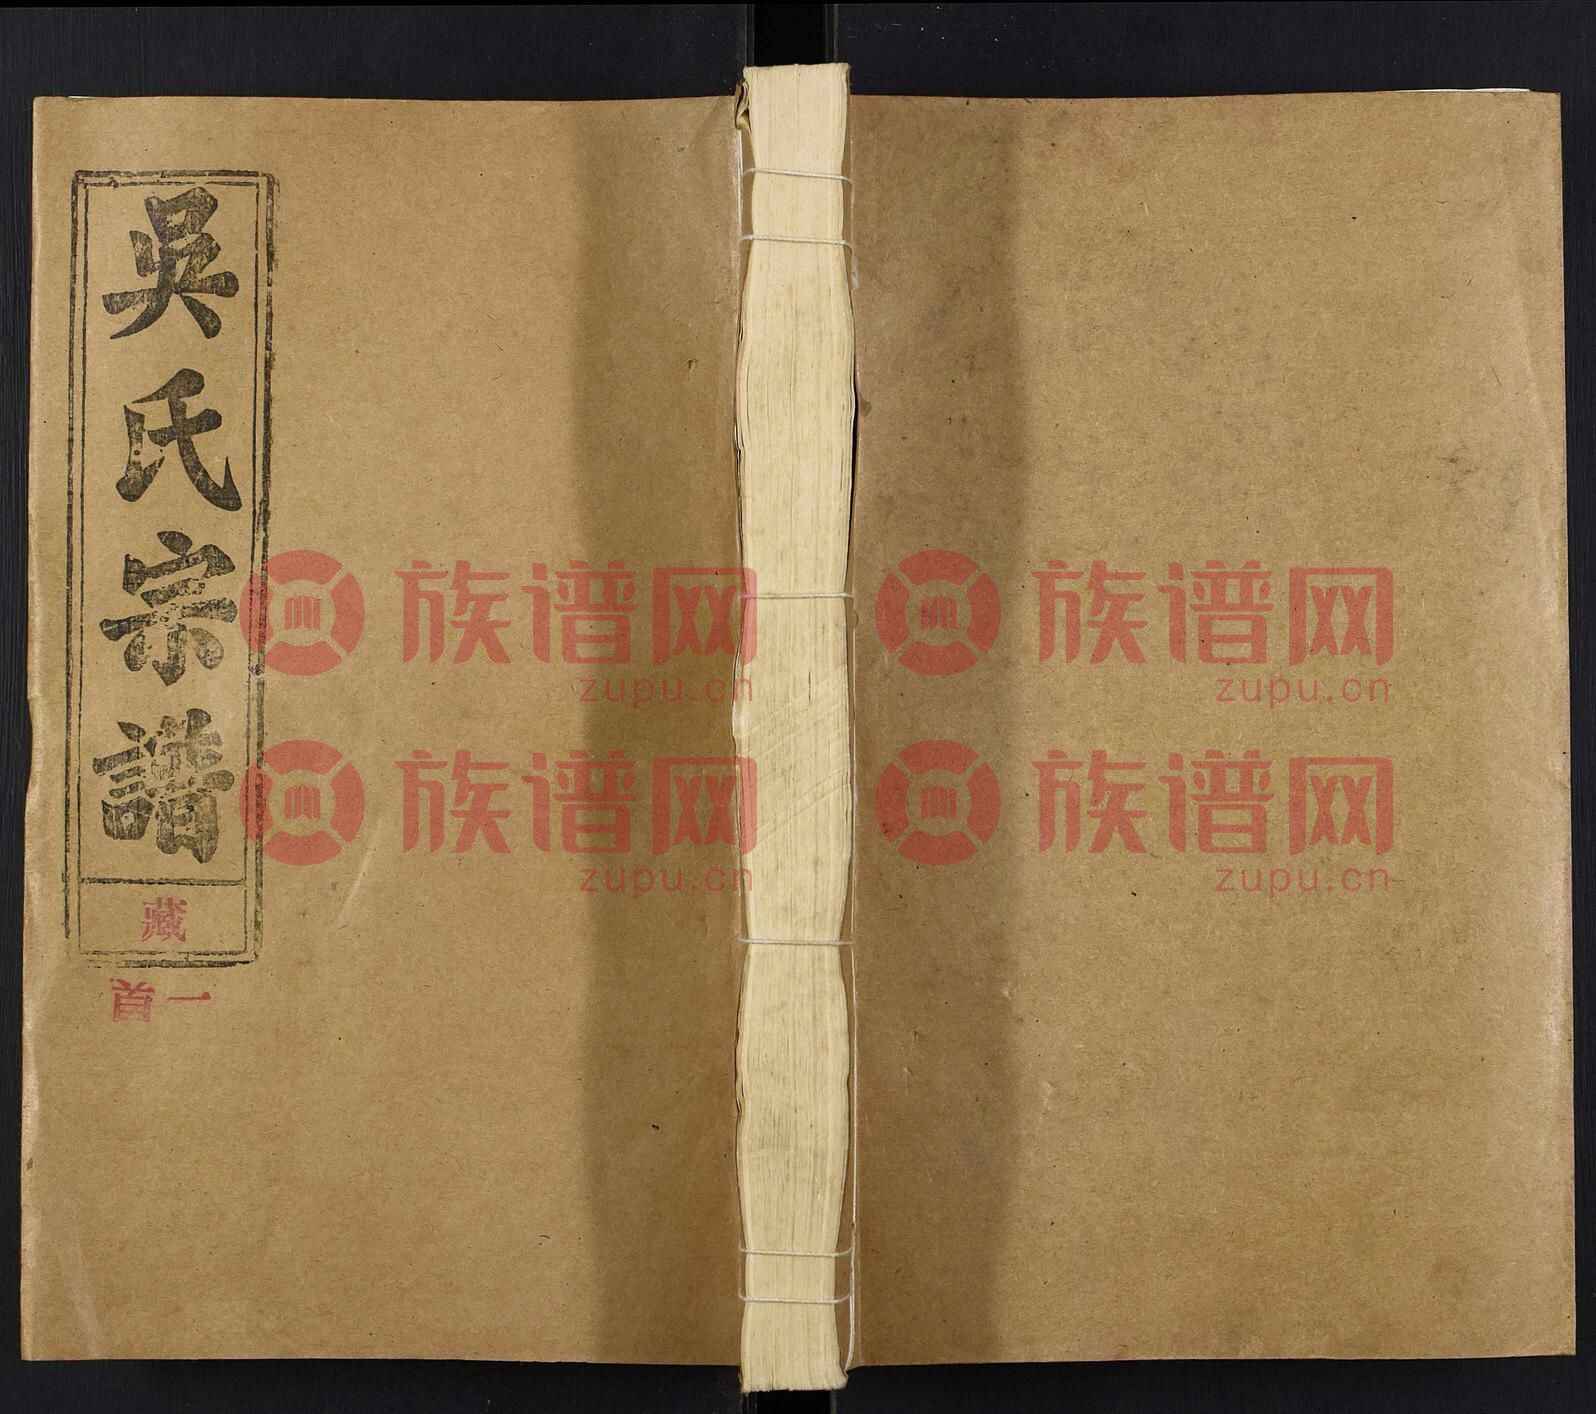 吳氏宗譜
藏
一首
族谱网 族谱网
zupu.cn zupu.cn
族谱网 族谱网
zupu.cn zupu.cn